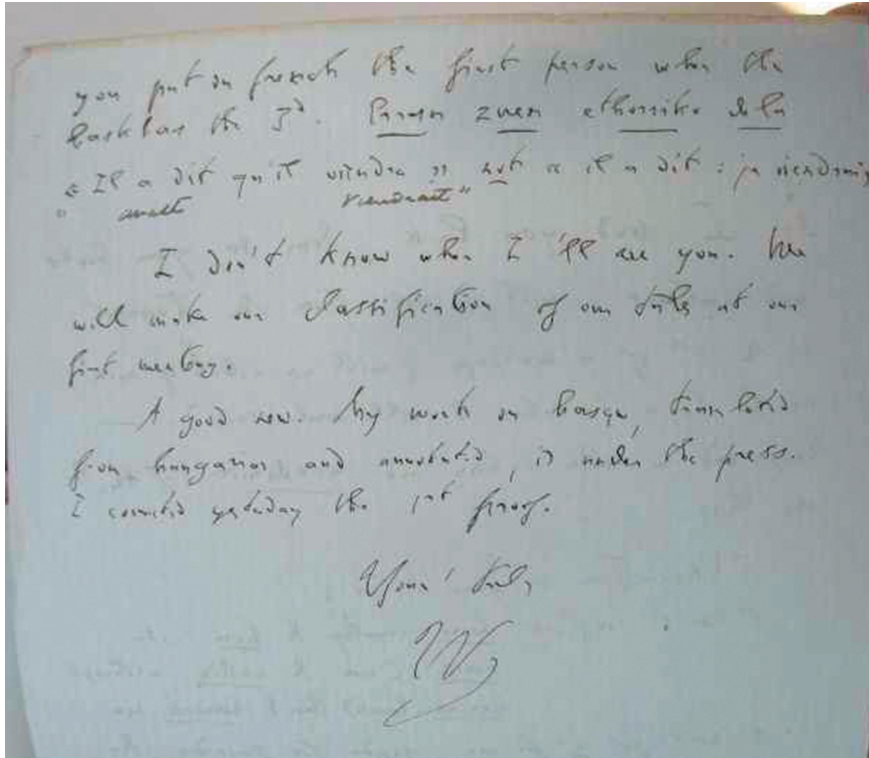 you put in french the first person when the
bask has the 3d. Erran zuen ethorriko dela
« Il a dit qu'il viendra » not « il a dit : je viendrai
" viendrait "
I don't know when I'll see you. We
will make our classification of our tales at our
first meeting.
A good new. My work on basque, translated
from hungarian and annotated, is under the press.
I corrected yesterday the 1st proof.
Yours' truly